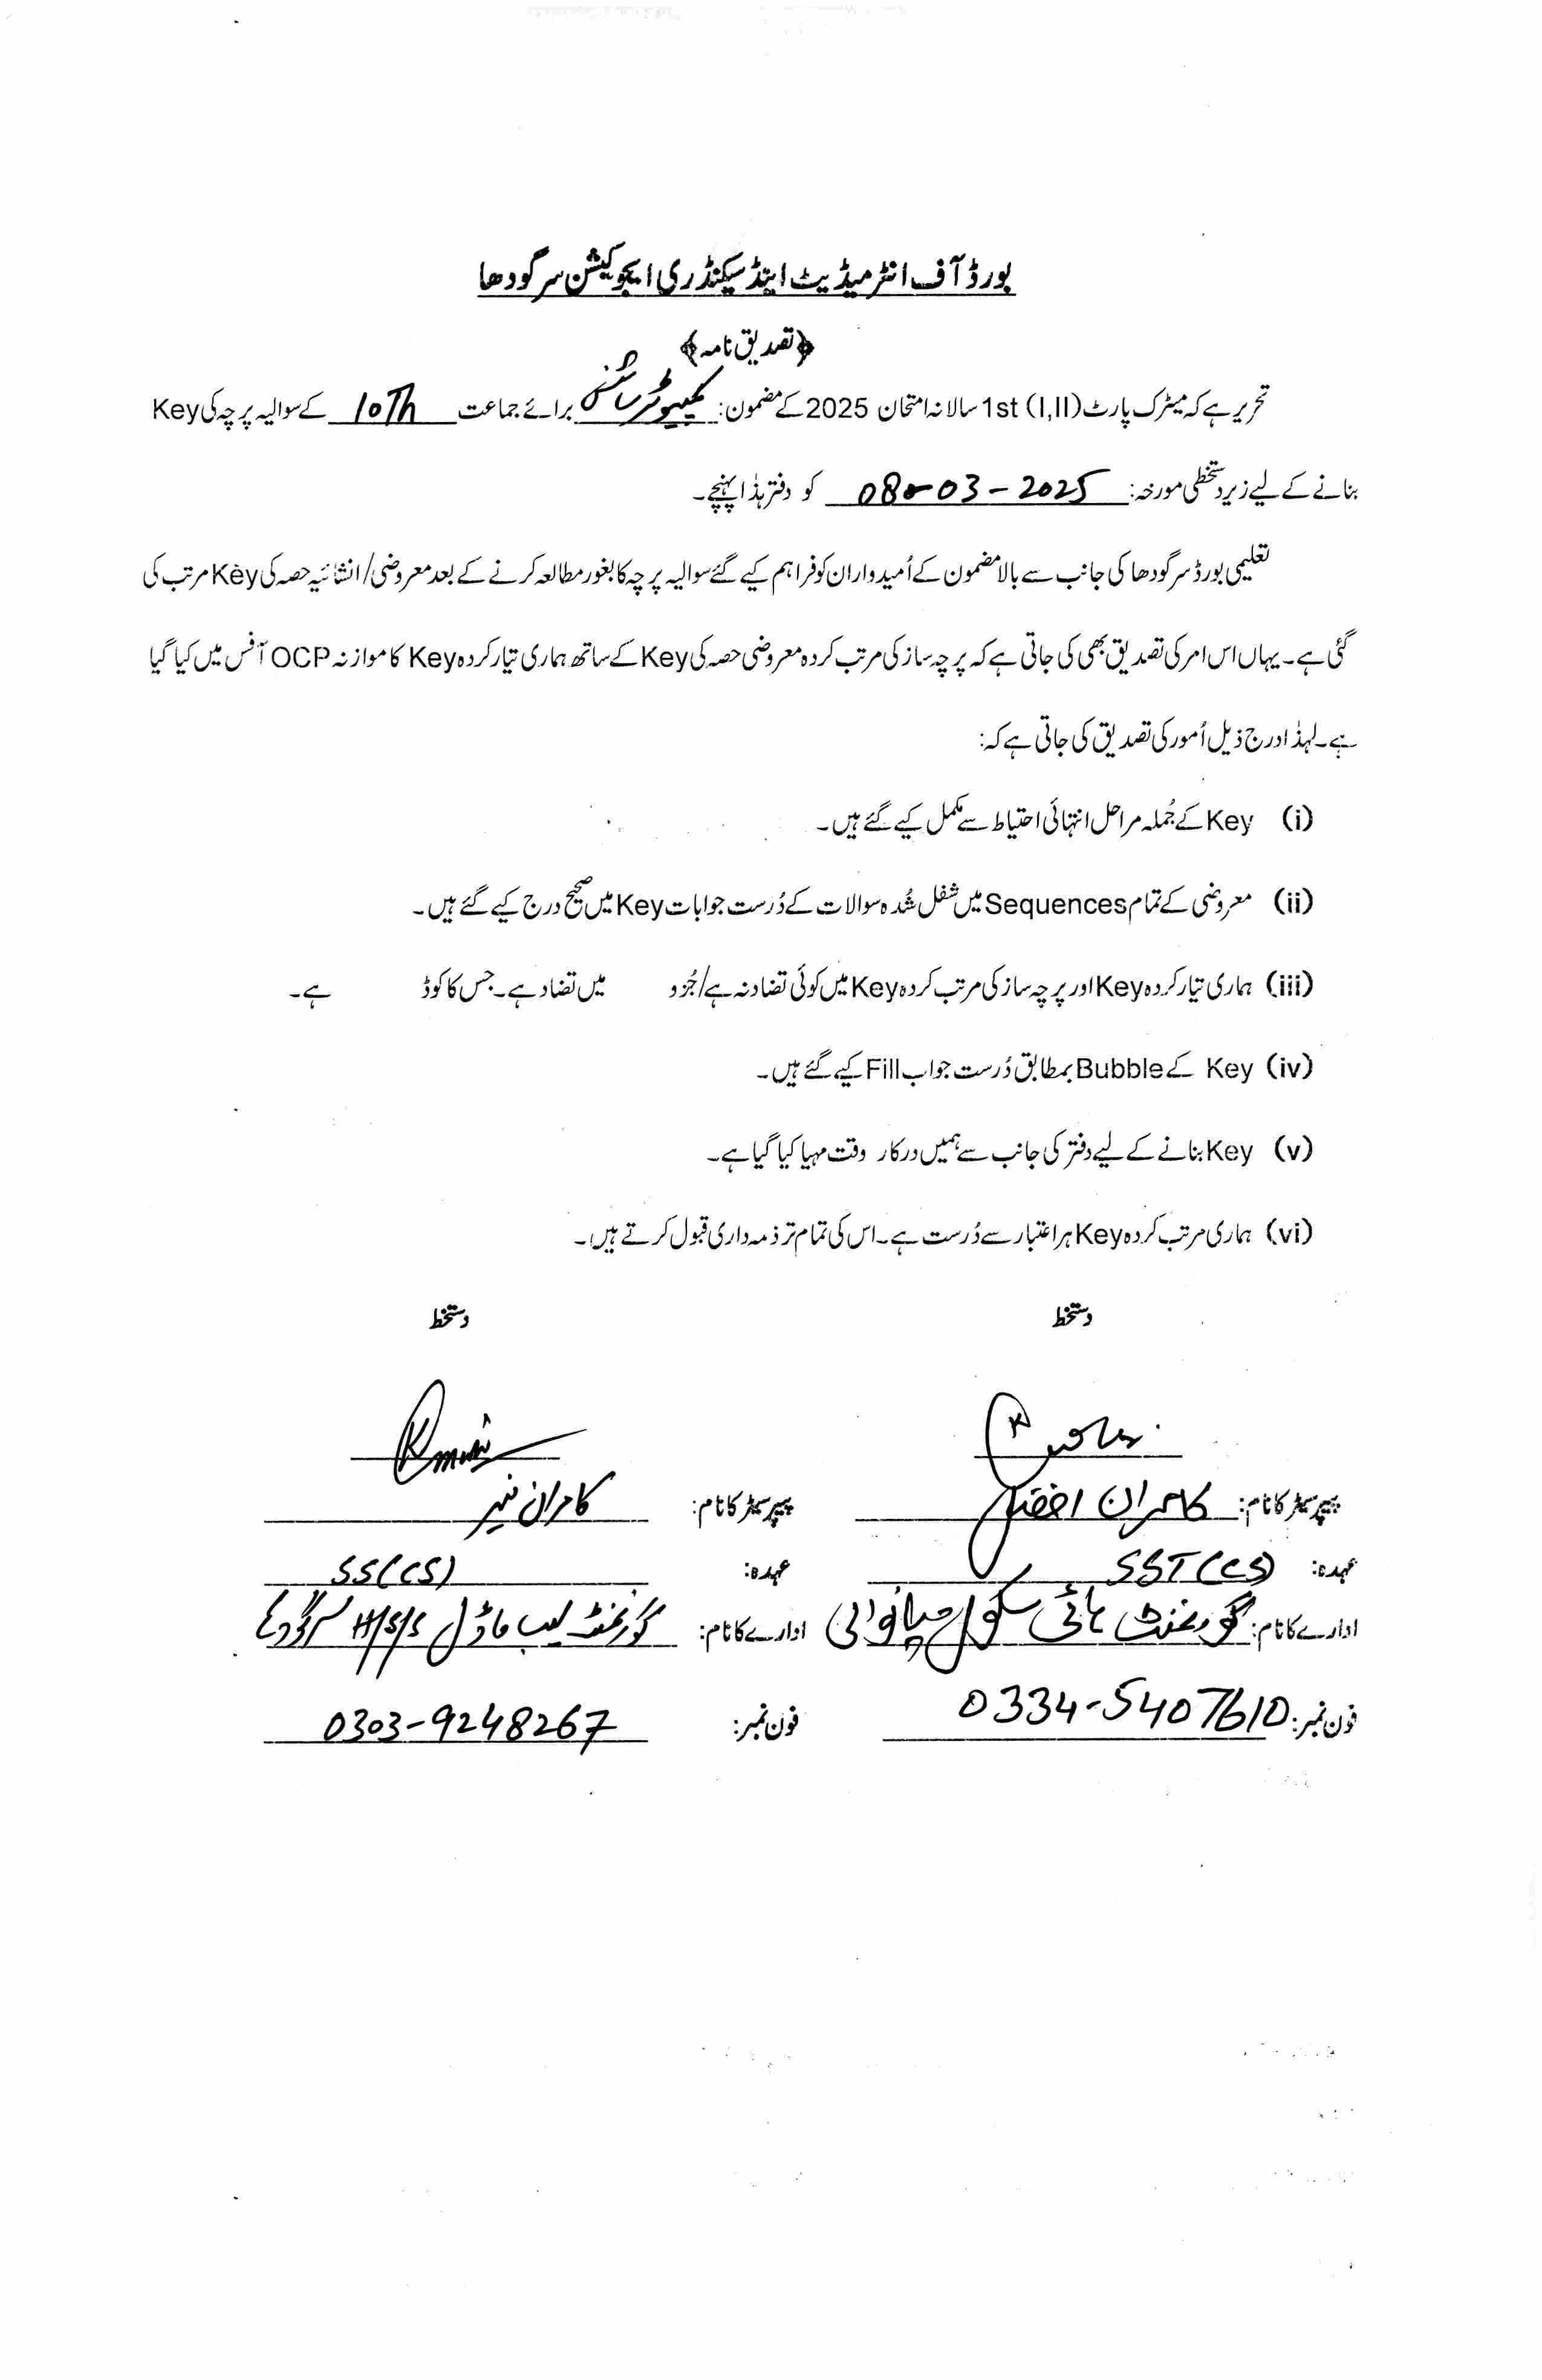 بورڈ آف انٹرمیڈیٹ اینڈ سیکنڈری ایجوکیشن سرگودھا
﴿تصدیق نامہ﴾
تحریر ہے کہ میٹرک پارٹ (I,II) 1st سالانہ امتحان 2025 کے مضمون: کمپیوٹر سائنس برائے جماعت 10Th کے سوالیہ پرچہ کی Key
بنانے کے لیے زیر دستخطی مورخہ: 08-03-2025 کو دفتر ہذا پہنچے۔
تعلیمی بورڈ سرگودھا کی جانب سے بالا مضمون کے اُمیدواران کو فراہم کیے گئے سوالیہ پرچہ کا بغور مطالعہ کرنے کے بعد معروضی/انشائیہ حصہ کی Key مرتب کی
گئی ہے۔ یہاں اس امر کی تصدیق بھی کی جاتی ہے کہ پرچہ ساز کی مرتب کردہ معروضی حصہ کی Key کے ساتھ ہماری تیار کردہ Key کا موازنہ OCP آفس میں کیا گیا
ہے۔ لہذا درج ذیل اُمور کی تصدیق کی جاتی ہے کہ:
(i) Key کے جُملہ مراحل انتہائی احتیاط سے مکمل کیے گئے ہیں۔
(ii) معروضی کے تمام Sequences میں شفل شُدہ سوالات کے دُرست جوابات Key میں صحیح درج کیے گئے ہیں۔
(iii) ہماری تیار کردہ Key اور پرچہ ساز کی مرتب کردہ Key میں کوئی تضاد نہ ہے/جُزو میں تضاد ہے۔ جس کا کوڈ ہے۔
(iv) Key کے Bubble بمطابق دُرست جواب Fill کیے گئے ہیں۔
(v) Key بنانے کے لیے دفتر کی جانب سے ہمیں درکار وقت مہیا کیا گیا ہے۔
(vi) ہماری مرتب کردہ Key ہر اعتبار سے دُرست ہے۔ اس کی تمام تر ذمہ داری قبول کرتے ہیں۔
دستخط دستخط
پیپر سیٹر کا نام: کامران افضل پیپر سیٹر کا نام: کامران منیر
عہدہ: SST (CS) عہدہ: SS(CS)
ادارے کا نام: گورنمنٹ ہائی سکول میانوالی ادارے کا نام: گورنمنٹ لیب ماڈل H/S/S سرگودھا
فون نمبر: 0334-5407610 فون نمبر: 0303-9248267